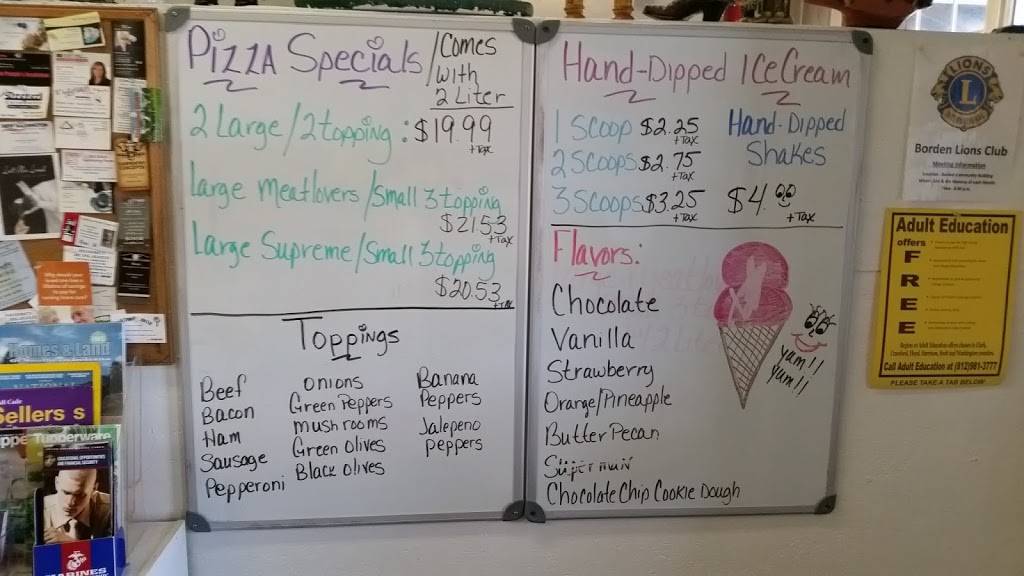 Pizza Specials / Comes
with
2 Liter
2 Large / 2 topping : $19.99
+Tax
Large Meatlovers / Small 3 topping
$21.53
+Tax
Large Supreme / Small 3 topping
$20.53
+TAX
Toppings
Beef
Bacon
Ham
Sausage
Pepperoni
Onions
Green Peppers
mushrooms
Green Olives
Black Olives
Banana
Peppers
Jalepeno
peppers
Hand-Dipped Ice Cream
1 Scoop $2.25
+TAX
2 Scoops $2.75
+TAX
3 Scoops $3.25
+TAX
Hand-Dipped
Shakes
$4.00
+TAX
Flavors:
Chocolate
Vanilla
Strawberry
Orange/Pineapple
Butter Pecan
Superman
Chocolate Chip Cookie Dough
yum!!
yum!!
LIONS
L
Borden Lions Club
Meeting Information
Adult Education
offers
FREE
Call Adult Education at (812)981-3777
PLEASE TAKE A TAB BELOW!
Homes & Land
Sellers
Tupperware
MARINES